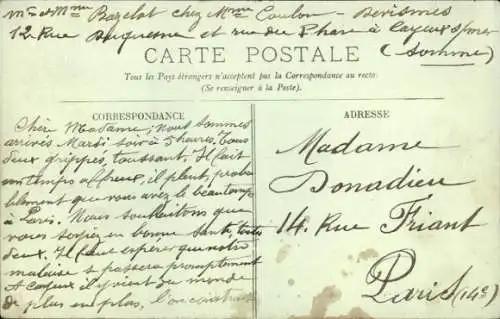 Mr et Mme Bazelot chez Mme Coulon - Derismes
12 Rue Duquesne et rue du Phare à Cayeux s/mer
(Somme)
CARTE POSTALE
Tous les Pays étrangers n'acceptent pas la Correspondance au recto
(Se renseigner à la Poste).
CORRESPONDANCE
Chère Madame, Nous sommes
arrivés Mardi soir à 5 heures, tous
deux grippés, toussant. Il fait
un temps affreux, il pleut, proba
blement que vous avez le beau temps
à Paris. Nous souhaitons que
vous soyiez en bonne santé, toutes
deux. Il faut espérer que notre
malaise se passera promptement
A Cayeux il y vient du monde
de plus en plus,
ADRESSE
Madame
Donadieu
14 Rue Friant
Paris (14e)